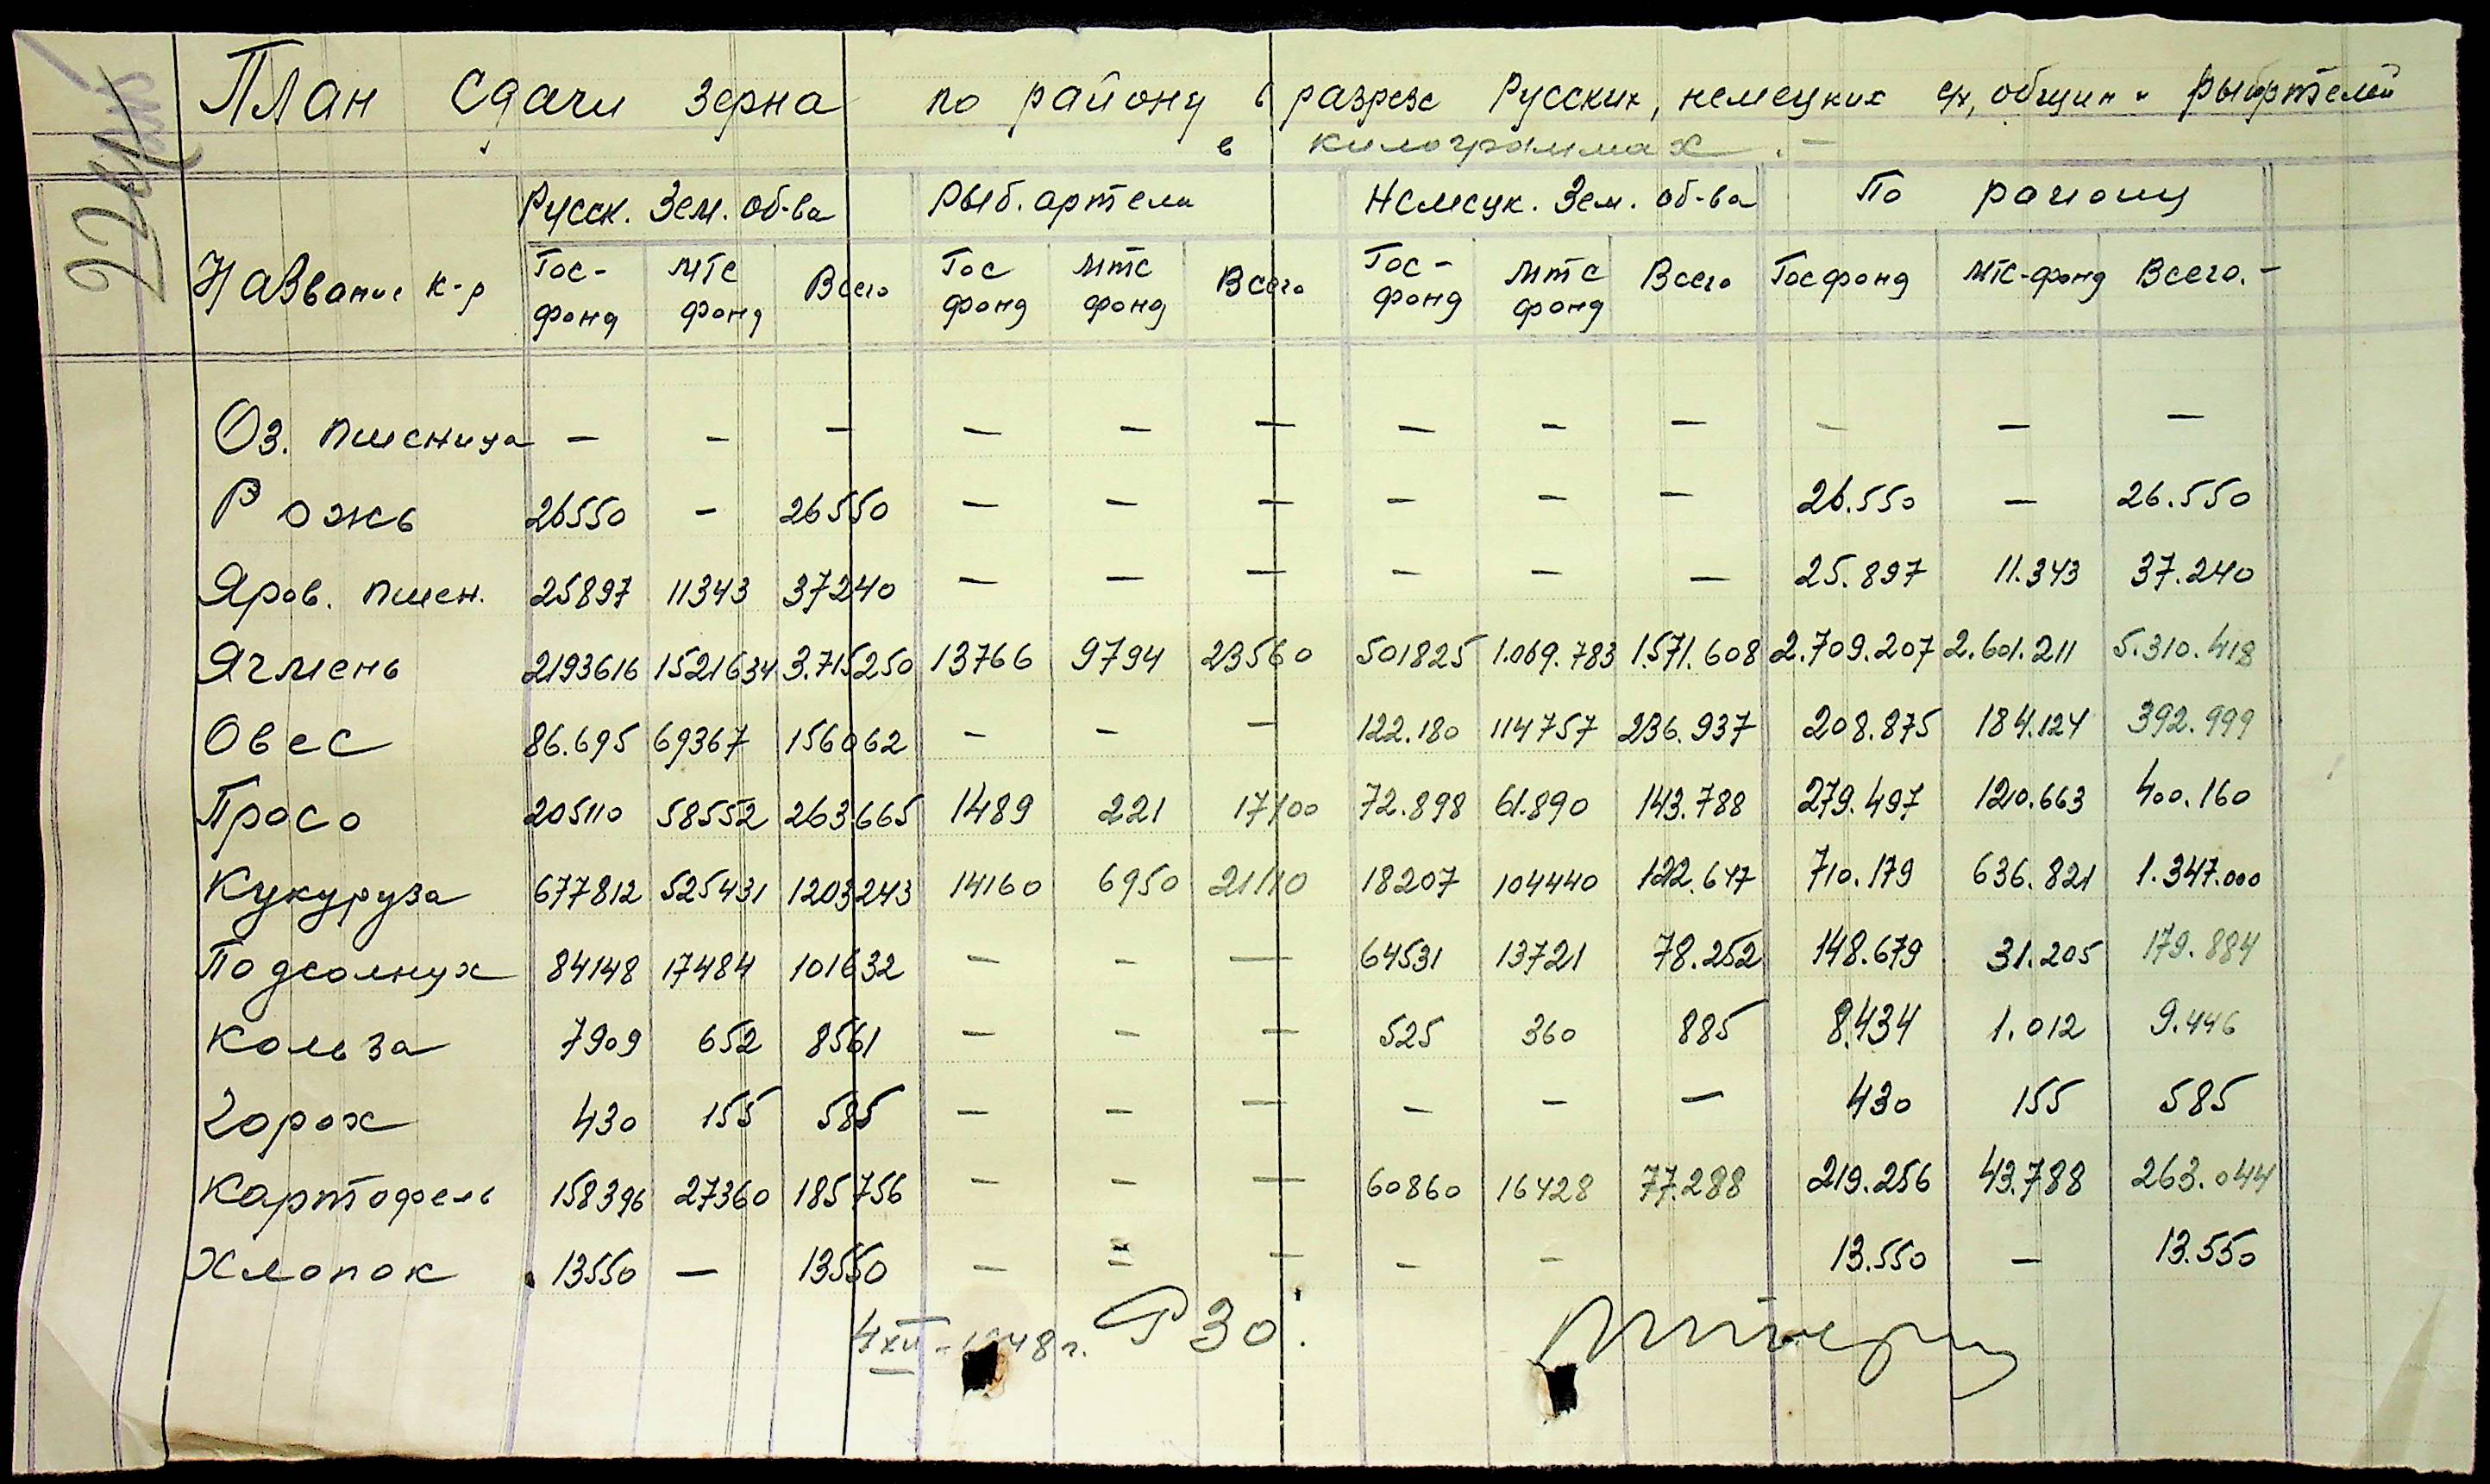 План сдачи зерна по району в разрезе Русских, немецких с/х, общин и рыбартелей
в килограммах.-
Русск. Зем. об-ва Рыб. артели Немецк. Зем. об-ва По району
Название к-р Гос-фонд МТС фонд Всего Гос фонд МТС фонд Всего Гос-фонд МТС фонд Всего Госфонд МТС-фонд Всего.-
Оз. пшеница — — — — — — — — — — — —
Рожь 26550 — 26550 — — — — — — 26.550 — 26.550
Яров. пшен. 25897 11343 37240 — — — — — — 25.897 11.343 37.240
Ячмень 2193616 1521634 3.715250 13766 9794 23560 501825 1.069.783 1.571.608 2.709.207 2.601.211 5.310.418
Овес 86.695 69367 156062 — — — 122.180 114757 236.937 208.875 184.124 392.999
Просо 205110 58552 263665 1489 221 17100 72.898 61.890 143.788 279.497 120.663 400.160
Кукуруза 677812 525431 1203243 14160 6950 21110 18207 104440 122.647 710.179 636.821 1.347.000
Подсолнух 84148 17484 101632 — — — 64531 13721 78.252 148.679 31.205 179.884
Кользa 7909 652 8561 — — — 525 360 885 8.434 1.012 9.446
Горох 430 155 585 — — — — — — 430 155 585
Картофель 158396 27360 185756 — — — 60860 16428 77.288 219.256 43.788 263.044
Хлопок 13550 — 13550 — = — — — 13.550 — 13.550
РЗО.